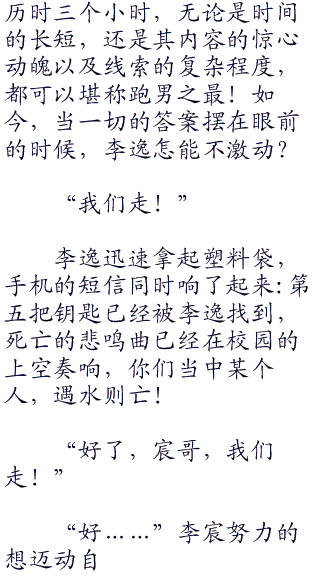 历时三个小时，无论是时间
的长短，还是其内容的惊心
动魄以及线索的复杂程度，
都可以堪称跑男之最！如
今，当一切的答案摆在眼前
的时候，李逸怎能不激动？
“我们走！”
李逸迅速拿起塑料袋，
手机的短信同时响了起来：第
五把钥匙已经被李逸找到，
死亡的悲鸣曲已经在校园的
上空奏响，你们当中某个
人，遇水则亡！
“好了，宸哥，我们
走！”
“好……”李宸努力的
想迈动自